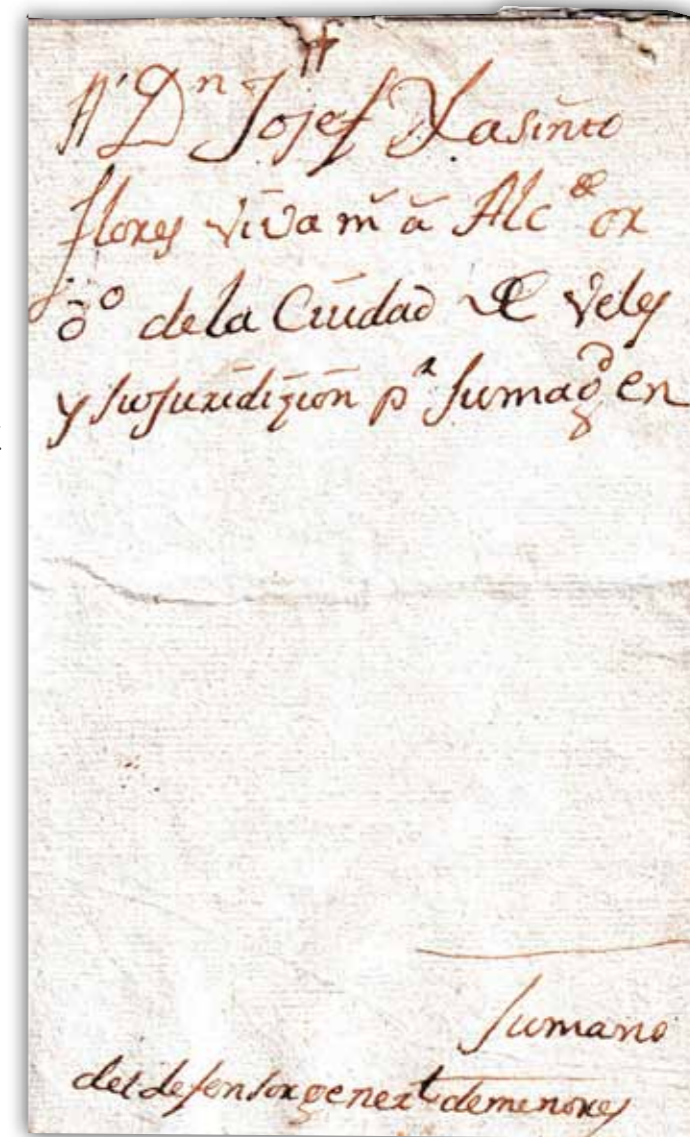 A Dn Josef Xasinto
flores viva m a Alc.de or
do de la Ciudad De Veles
y sujuridizion pr sumagd en
sumano
del defensor generl demenores